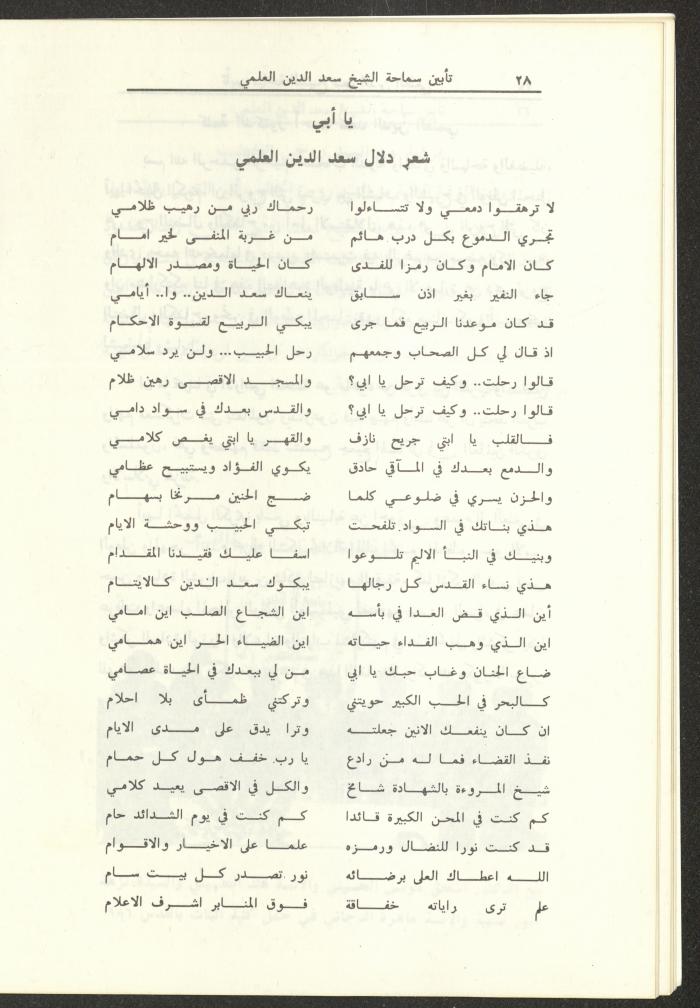 ٢٨ تأبين سماحة الشيخ سعد الدين العلمي
يا أبي
شعر دلال سعد الدين العلمي
لا ترهقوا دمعي ولا تتساءلوا رحماك ربي من رهيب ظلامي
تجري الدموع بكل درب هائم من غربة المنفى لخير امام
كان الامام وكان رمزا للفدى كان الحياة ومصدر الالهام
جاء النفير بغير اذن سابق ينعاك سعد الدين.. وا.. أيامي
قد كان موعدنا الربيع فما جرى يبكي الربيع لقسوة الاحكام
اذ قال لي كل الصحاب وجمعهم رحل الحبيب... ولن يرد سلامي
قالوا رحلت.. وكيف ترحل يا ابي؟ والمسجد الاقصى رهين ظلام
قالوا رحلت.. وكيف ترحل يا ابي؟ والقدس بعدك في سواد دامي
فالقلب يا ابتي جريح نازف والقهر يا ابتي يغص كلامي
والدمع بعدك في المآقي حادق يكوي الفؤاد ويستبيح عظامي
والحزن يسري في ضلوعي كلما ضج الحنين مرنخا بسهام
هذي بناتك في السواد تلفحت تبكي الحبيب ووحشة الايام
وبنيك في النبأ الاليم تلوعوا اسفا عليك فقيدنا المقدام
هذي نساء القدس كل رجالها يبكوك سعد الدين كالايتام
أين الذي قض العدا في بأسه اين الشجاع الصلب اين امامي
اين الذي وهب الفداء حياته اين الضياء الحر اين همامي
ضاع الحنان وغاب حبك يا ابي من لي ببعدك في الحياة عصامي
كالبحر في الحب الكبير حويتني وتركتني ظمأى بلا احلام
ان كان ينفعك الانين جعلته وترا يدق على مدى الايام
نفذ القضاء فما له من رادع يا رب خفف هول كل حمام
شيخ المروءة بالشهادة شامخ والكل في الاقصى يعيد كلامي
كم كنت في المحن الكبيرة قائدا كم كنت في يوم الشدائد حام
قد كنت نورا للنضال ورمزه علما على الاخيار والاقوام
الله اعطاك العلى برضائه نور تصدر كل بيت سام
علم ترى راياته خفاقة فوق المنابر اشرف الاعلام